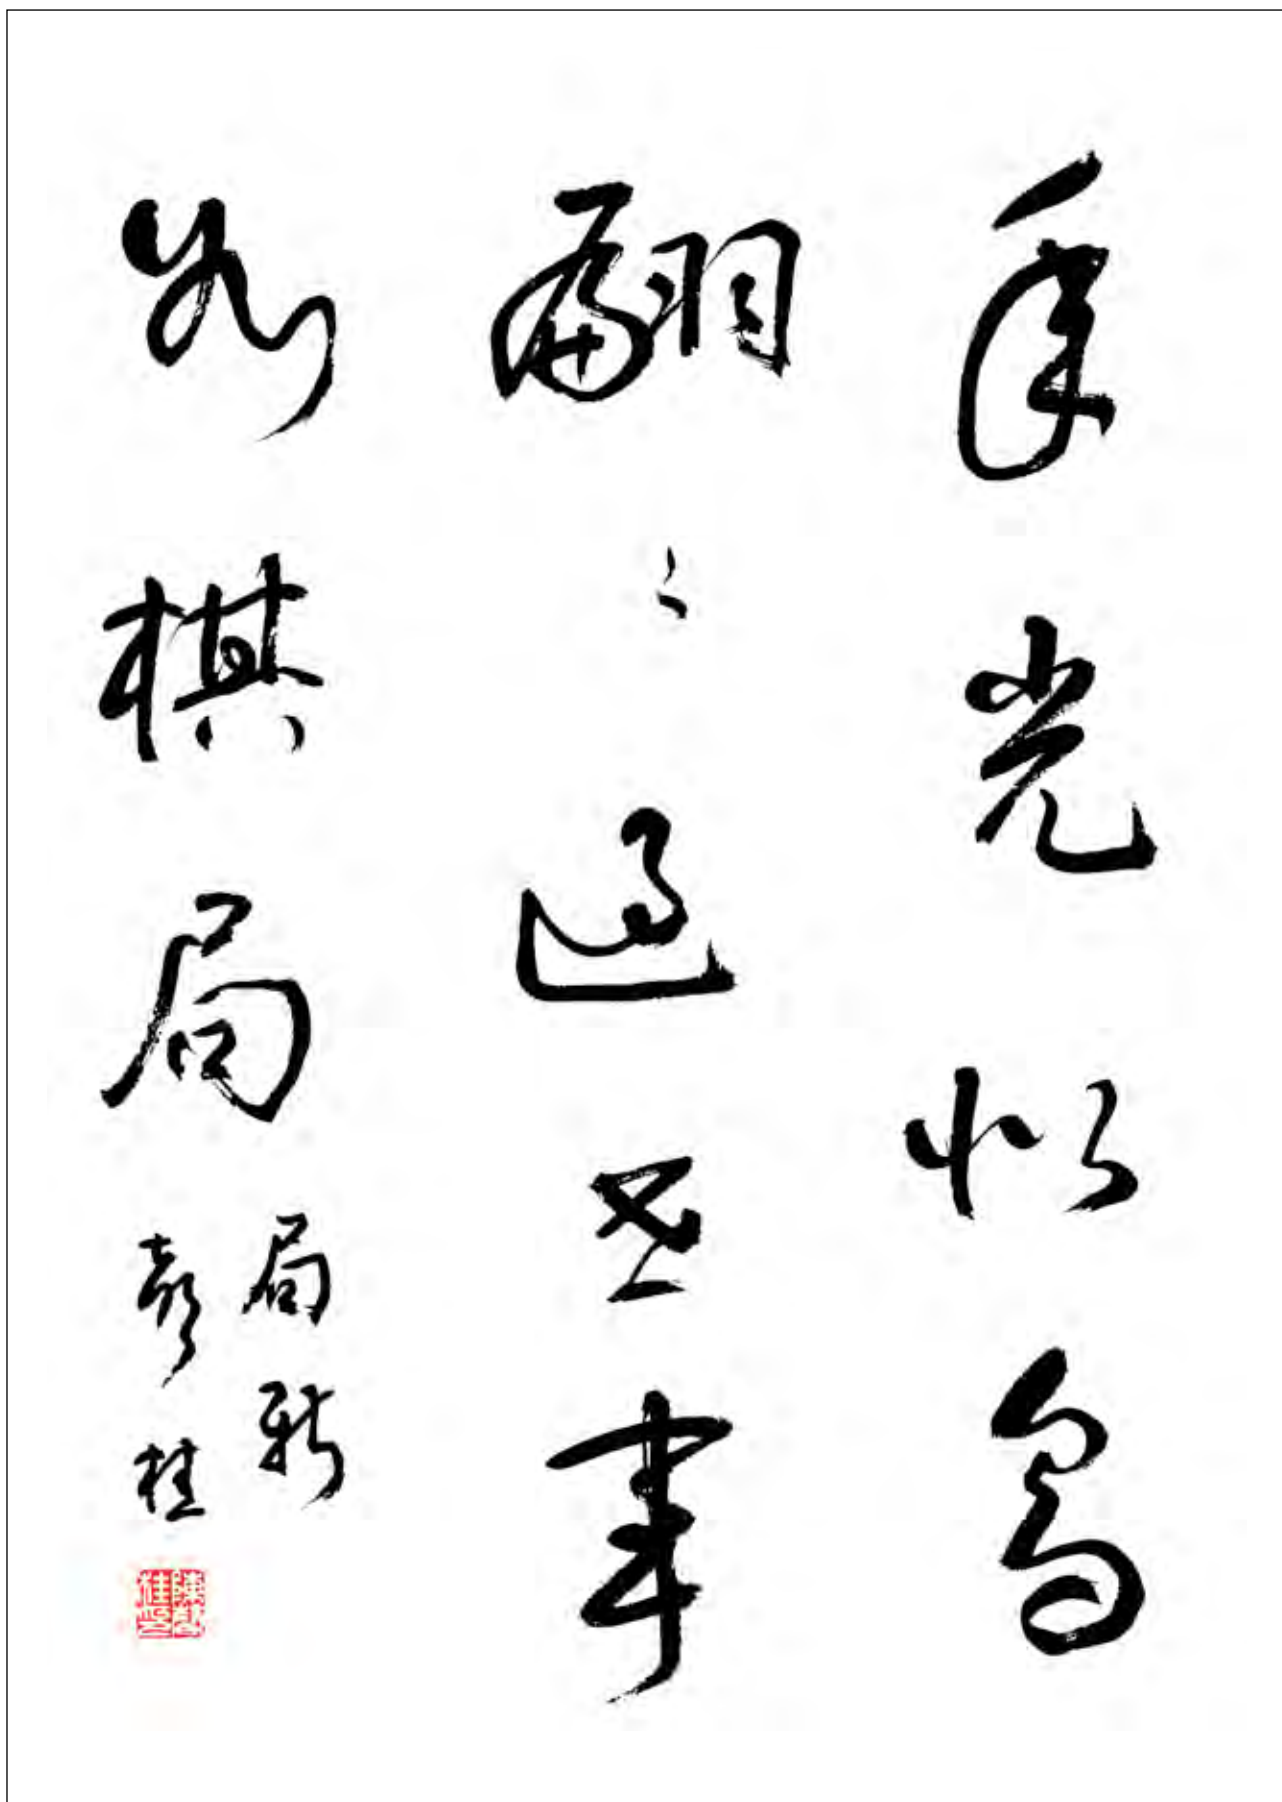 年光似鳥
翩〻過世事
如棋局
局新
彭桂